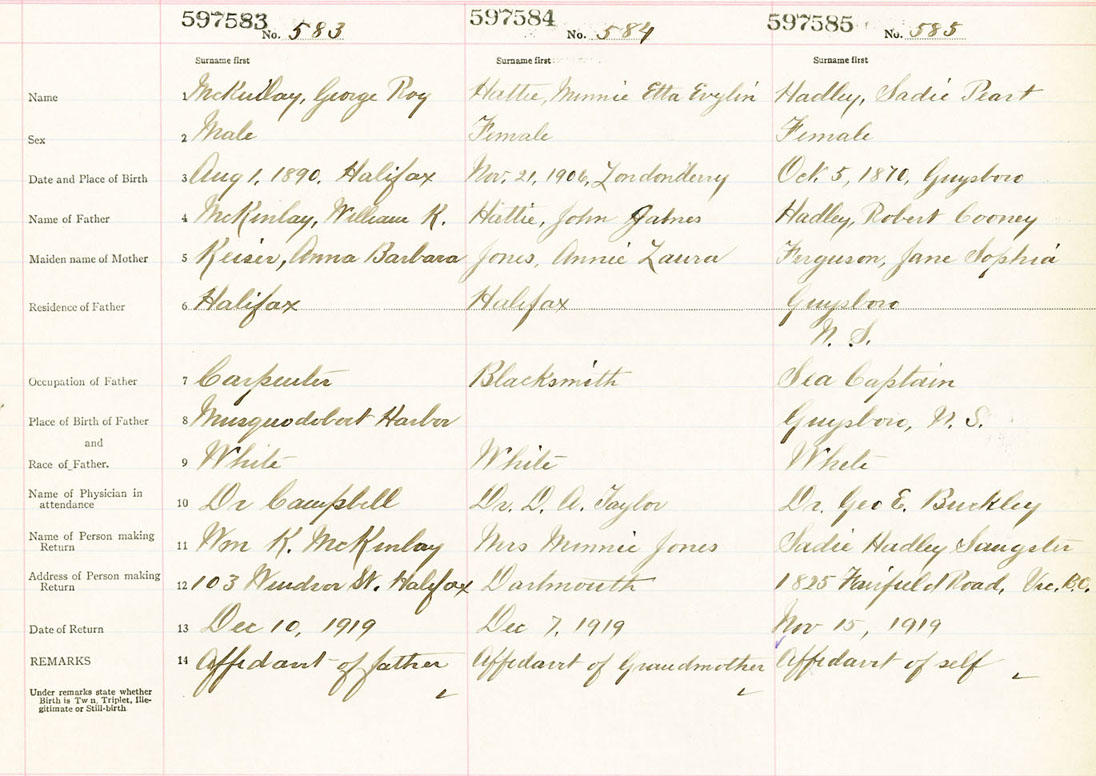 597583 597584 597585
No. 583 No. 584 No. 585
Surname first Surname first Surname first
Name 1 McKinlay, George Roy Hattie, Minnie Etta Evylin Hadley, Sadie Peart
Sex 2 Male Female Female
Date and Place of Birth 3 Aug 1, 1890. Halifax Nov. 21, 1906, Londonderry Oct. 5, 1870, Guysboro
Name of Father 4 McKinlay, William K. Hattie, John James Hadley, Robert Cooney
Maiden name of Mother 5 Keiser, Anna Barbara Jones, Annie Laura Ferguson, Jane Sophia
Residence of Father 6 Halifax Halifax Guysboro
N. S.
Occupation of Father 7 Carpenter Blacksmith Sea Captain
Place of Birth of Father 8 Musquodobort Harbor Guysboro, N. S.
and
Race of Father. 9 White White White
Name of Physician in
attendance 10 Dr Campbell Dr. D. A. Taylor Dr. Geo E. Buckley
Name of Person making
Return 11 Wm K. McKinlay Mrs Minnie Jones Sadie Hadley Sangster
Address of Person making
Return 12 103 Windsor St. Halifax Dartmouth 1825 Fairfield Road, Vic. B.C.
Date of Return 13 Dec 10, 1919 Dec 7, 1919 Nov 15, 1919
REMARKS 14 Affidavit of father Affidavit of Grandmother Affidavit of self
Under remarks state whether
Birth is Tw n, Triplet, Ille-
gitimate or Still-birth